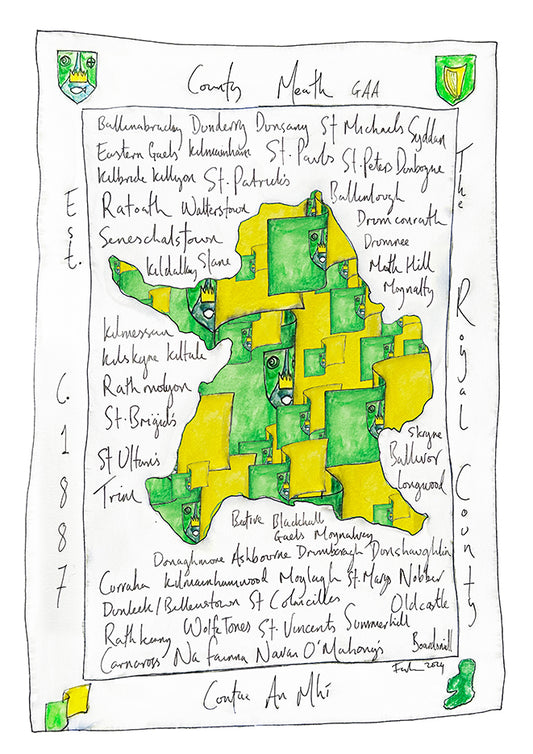 County Meath GAA
Ballinabrackey Dunderry Dunsany St Michaels Syddan
Eastern Gaels Kilmainham St. Pauls St. Peters Dunboyne
Kilbride Killyon St. Patricks Ballinlough
Ratoath Walterstown Drumconrath
Seneschalstown Drumree
Kildalkey Slane Meath Hill
Moynalty
Kilmessan
Kilskyre Kiltale
Rathmolyon
St. Brigids
St Ultans
Trim
Skryne
Ballivor
Longwood
Bective Blackhall
Gaels Moynalvey
Donaghmore Ashbourne Drumbaragh Dunshaughlin
Curraha Kilmainhamwood Moylagh St. Marys Nobber
Duleek/Bellewstown St Colmcilles Oldcastle
Rathkenny Wolfe Tones St. Vincents Summerhill
Carnaross Na Fianna Navan O'Mahonys Boardsmill
2024
Contae An Mhí
Est. C. 1887
The Royal County